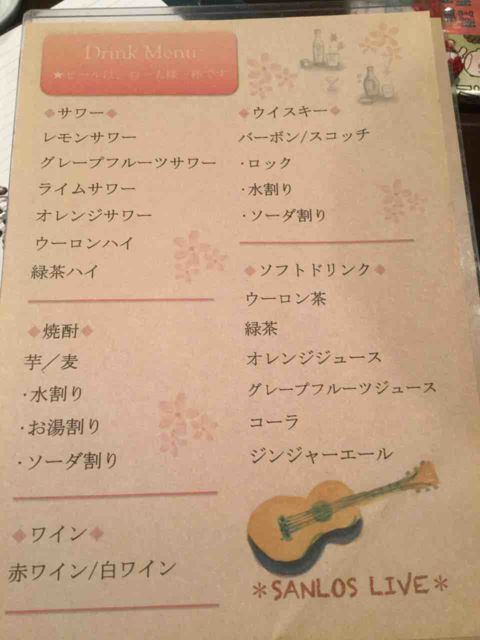 Drink Menu
★ビールは、お一人様一杯です
◆サワー◆
レモンサワー
グレープフルーツサワー
ライムサワー
オレンジサワー
ウーロンハイ
緑茶ハイ
◆焼酎◆
芋／麦
・水割り
・お湯割り
・ソーダ割り
◆ワイン◆
赤ワイン/白ワイン
◆ウイスキー◆
バーボン/スコッチ
・ロック
・水割り
・ソーダ割り
◆ソフトドリンク◆
ウーロン茶
緑茶
オレンジジュース
グレープフルーツジュース
コーラ
ジンジャーエール
*SANLOS LIVE*